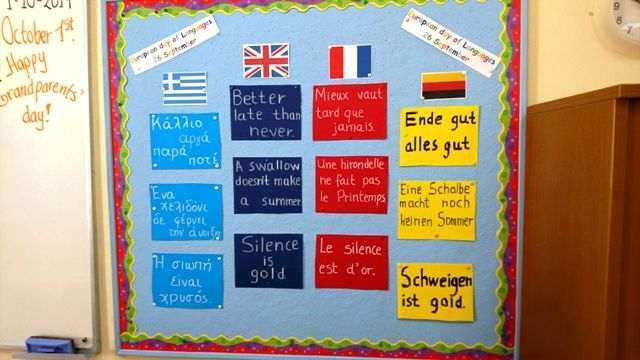 1-10-2014
October 1st.
Happy
Grandparents'
day!
European day of Languages
26 September
European day of Languages
26 September
Κάλλιο
αργά
παρά
ποτέ
Ένα
χελιδόνι
δε φέρνει
την άνοιξη
Η σιωπή
είναι
χρυσός.
Better
late than
never.
A swallow
doesn't make
a summer
Silence
is
gold.
Mieux vaut
tard que
jamais.
Une hirondelle
ne fait pas
le Printemps
Le silence
est d'or.
Ende gut
alles gut
Eine Schalbe
macht noch
keinen Sommer
Schweigen
ist gold.